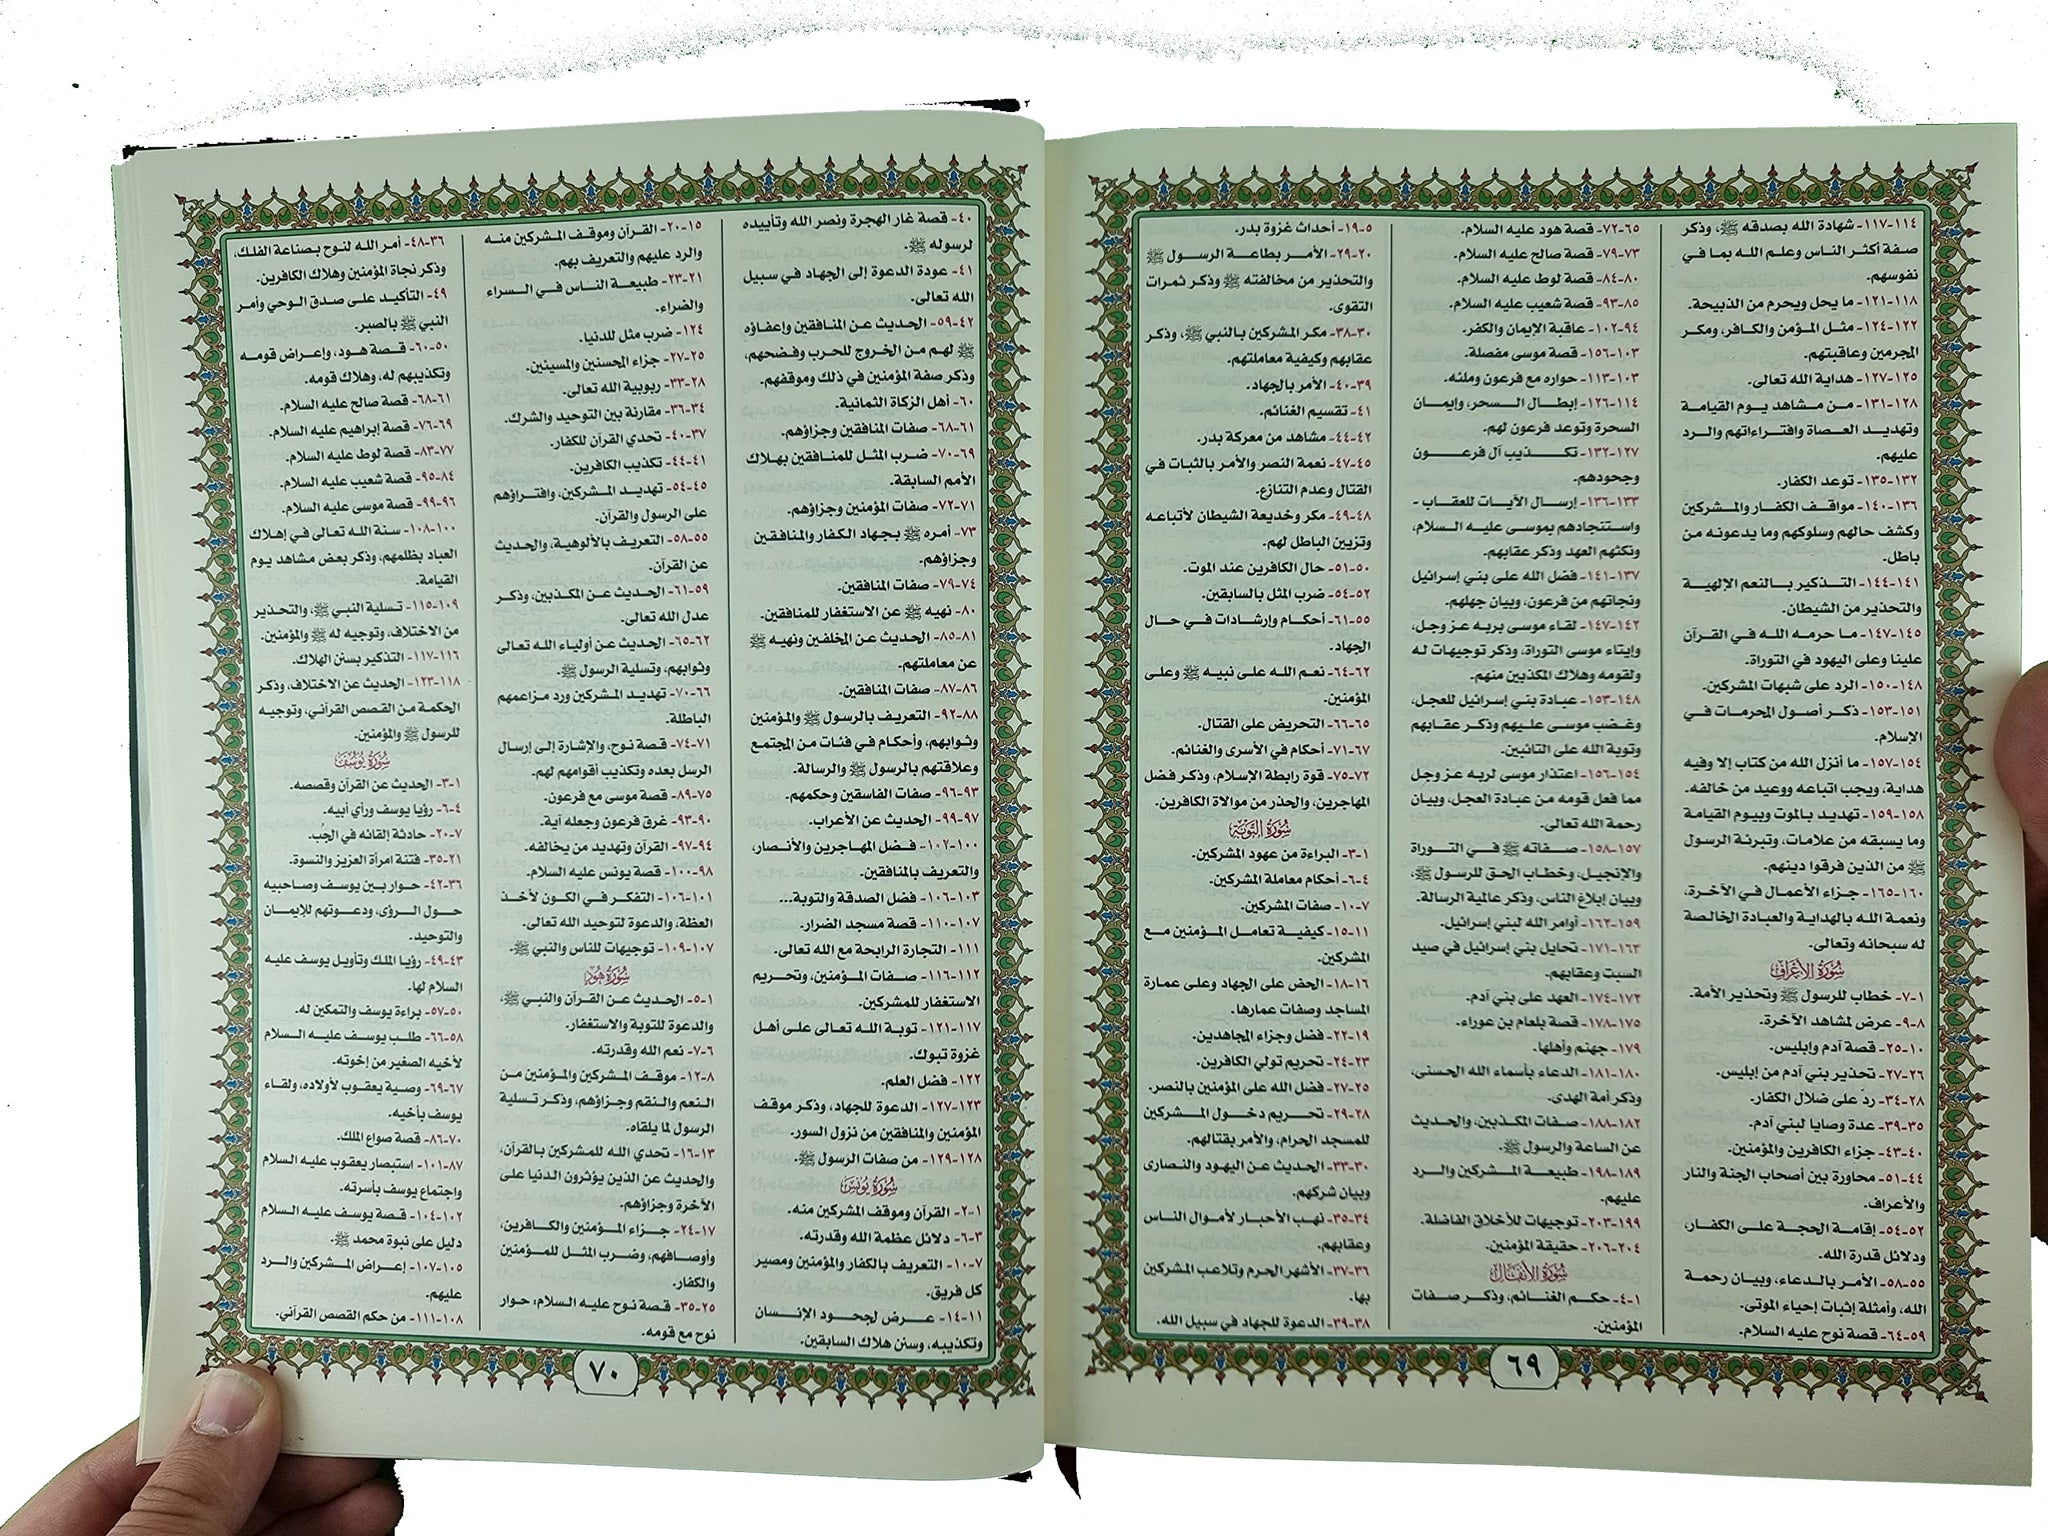 ١١٤-١١٧- شهادة الله بصدقه ﷺ، وذكر
صفة أكثر الناس وعلم الله بما في
نفوسهم.
١١٨-١٢١- ما يحل ويحرم من الذبيحة.
١٢٢-١٢٤- مثل المؤمن والكافر، ومكر
المجرمين وعاقبتهم.
١٢٥-١٢٧- هداية الله تعالى.
١٢٨-١٣١- من مشاهد يوم القيامة
وتهديد العصاة وافتراءاتهم والرد
عليهم.
١٣٢-١٣٥- توعد الكفار.
١٣٦-١٤٠- مواقف الكفار والمشركين
وكشف حالهم وسلوكهم وما يدعونه من
باطل.
١٤١-١٤٤- التذكير بالنعم الإلهية
والتحذير من الشيطان.
١٤٥-١٤٧- ما حرمه الله في القرآن
علينا وعلى اليهود في التوراة.
١٤٨-١٥٠- الرد على شبهات المشركين.
١٥١-١٥٣- ذكر أصول المحرمات في
الإسلام.
١٥٤-١٥٧- ما أنزل الله من كتاب إلا وفيه
هداية، ويجب اتباعه ووعيد من خالفه.
١٥٨-١٥٩- تهديد بالموت وبيوم القيامة
وما يسبقه من علامات، وتبرئة الرسول
ﷺ من الذين فرقوا دينهم.
١٦٠-١٦٥- جزاء الأعمال في الآخرة،
ونعمة الله بالهداية والعبادة الخالصة
له سبحانه وتعالى.
سورة الأعراف
١-٧- خطاب للرسول ﷺ وتحذير الأمة.
٨-٩- عرض لمشاهد الآخرة.
١٠-٢٥- قصة آدم وإبليس.
٢٦-٢٧- تحذير بني آدم من إبليس.
٢٨-٣٤- رد على ضلال الكفار.
٣٥-٣٩- عدة وصايا لبني آدم.
٤٠-٤٣- جزاء الكافرين والمؤمنين.
٤٤-٥١- محاورة بين أصحاب الجنة والنار
والأعراف.
٥٢-٥٤- إقامة الحجة على الكفار،
ودلائل قدرة الله.
٥٥-٥٨- الأمر بالدعاء، وبيان رحمة
الله، وأمثلة إثبات إحياء الموتى.
٥٩-٦٤- قصة نوح عليه السلام.
٦٥-٧٢- قصة هود عليه السلام.
٧٣-٧٩- قصة صالح عليه السلام.
٨٠-٨٤- قصة لوط عليه السلام.
٨٥-٩٣- قصة شعيب عليه السلام.
٩٤-١٠٢- عاقبة الإيمان والكفر.
١٠٣-١٥٦- قصة موسى مفصلة.
١٠٣-١١٣- حواره مع فرعون وملئه.
١١٤-١٢٦- إبطال السحر، وإيمان
السحرة وتوعد فرعون لهم.
١٢٧-١٣٢- تكذيب آل فرعون
وجحودهم.
١٣٣-١٣٦- إرسال الآيات للعقاب -
واستنجادهم بموسى عليه السلام،
ونكثهم العهد وذكر عقابهم.
١٣٧-١٤١- فضل الله على بني إسرائيل
ونجاتهم من فرعون، وبيان جهلهم.
١٤٢-١٤٧- لقاء موسى بربه عز وجل،
وإيتاء موسى التوراة، وذكر توجيهات له
ولقومه وهلاك المكذبين منهم.
١٤٨-١٥٣- عبادة بني إسرائيل للعجل،
وغضب موسى عليهم وذكر عقابهم
وتوبة الله على التائبين.
١٥٤-١٥٦- اعتذار موسى لربه عز وجل
مما فعل قومه من عبادة العجل، وبيان
رحمة الله تعالى.
١٥٧-١٥٨- صفاته ﷺ في التوراة
والإنجيل، وخطاب الحق للرسول ﷺ،
وبيان إبلاغ الناس، وذكر عالمية الرسالة.
١٥٩-١٦٢- أوامر الله لبني إسرائيل.
١٦٣-١٧١- تحايل بني إسرائيل في صيد
السبت وعقابهم.
١٧٢-١٧٤- العهد على بني آدم.
١٧٥-١٧٨- قصة بلعام بن عوراء.
١٧٩- جهنم وأهلها.
١٨٠-١٨١- الدعاء بأسماء الله الحسنى،
وذكر أمة الهدى.
١٨٢-١٨٨- صفات المكذبين، والحديث
عن الساعة والرسول ﷺ.
١٨٩-١٩٨- طبيعة المشركين والرد
عليهم.
١٩٩-٢٠٣- توجيهات للأخلاق الفاضلة.
٢٠٤-٢٠٦- حقيقة المؤمنين.
سورة الأنفال
١-٤- حكم الغنائم، وذكر صفات
المؤمنين.
٥-١٩- أحداث غزوة بدر.
٢٠-٢٩- الأمر بطاعة الرسول ﷺ
والتحذير من مخالفته ﷺ وذكر ثمرات
التقوى.
٣٠-٣٨- مكر المشركين بالنبي ﷺ، وذكر
عقابهم وكيفية معاملتهم.
٣٩-٤٠- الأمر بالجهاد.
٤١- تقسيم الغنائم.
٤٢-٤٤- مشاهد من معركة بدر.
٤٥-٤٧- نعمة النصر والأمر بالثبات في
القتال وعدم التنازع.
٤٨-٤٩- مكر وخديعة الشيطان لأتباعه
وتزيين الباطل لهم.
٥٠-٥١- حال الكافرين عند الموت.
٥٢-٥٤- ضرب المثل بالسابقين.
٥٥-٦١- أحكام وإرشادات في حال
الجهاد.
٦٢-٦٤- نعم الله على نبيه ﷺ وعلى
المؤمنين.
٦٥-٦٦- التحريض على القتال.
٦٧-٧١- أحكام في الأسرى والغنائم.
٧٢-٧٥- قوة رابطة الإسلام، وذكر فضل
المهاجرين، والحذر من موالاة الكافرين.
سورة التوبة
١-٣- البراءة من عهود المشركين.
٤-٦- أحكام معاملة المشركين.
٧-١٠- صفات المشركين.
١١-١٥- كيفية تعامل المؤمنين مع
المشركين.
١٦-١٨- الحض على الجهاد وعلى عمارة
المساجد وصفات عمارها.
١٩-٢٢- فضل وجزاء المجاهدين.
٢٣-٢٤- تحريم تولي الكافرين.
٢٥-٢٧- فضل الله على المؤمنين بالنصر.
٢٨-٢٩- تحريم دخول المشركين
للمسجد الحرام، والأمر بقتالهم.
٣٠-٣٣- الحديث عن اليهود والنصارى
وبيان شركهم.
٣٤-٣٥- نهب الأحبار لأموال الناس
وعقابهم.
٣٦-٣٧- الأشهر الحرم وتلاعب المشركين
بها.
٣٨-٣٩- الدعوة للجهاد في سبيل الله.
٦٩
٤٠- قصة غار الهجرة ونصر الله وتأييده
لرسوله ﷺ.
٤١- عودة الدعوة إلى الجهاد في سبيل
الله تعالى.
٤٢-٥٩- الحديث عن المنافقين وإعفاؤه
ﷺ لهم من الخروج للحرب وفضحهم،
وذكر صفة المؤمنين في ذلك وموقفهم.
٦٠- أهل الزكاة الثمانية.
٦١-٦٨- صفات المنافقين وجزاؤهم.
٦٩-٧٠- ضرب المثل للمنافقين بهلاك
الأمم السابقة.
٧١-٧٢- صفات المؤمنين وجزاؤهم.
٧٣- أمره ﷺ بجهاد الكفار والمنافقين
وجزاؤهم.
٧٤-٧٩- صفات المنافقين.
٨٠- نهيه ﷺ عن الاستغفار للمنافقين.
٨١-٨٥- الحديث عن المخلفين ونهيه ﷺ
عن معاملتهم.
٨٦-٨٧- صفات المنافقين.
٨٨-٩٢- التعريف بالرسول ﷺ والمؤمنين
وثوابهم، وأحكام في فئات من المجتمع
وعلاقتهم بالرسول ﷺ والرسالة.
٩٣-٩٦- صفات الفاسقين وحكمهم.
٩٧-٩٩- الحديث عن الأعراب.
١٠٠-١٠٢- فضل المهاجرين والأنصار،
والتعريف بالمنافقين.
١٠٣-١٠٦- فضل الصدقة والتوبة...
١٠٧-١١٠- قصة مسجد الضرار.
١١١- التجارة الرابحة مع الله تعالى.
١١٢-١١٦- صفات المؤمنين، وتحريم
الاستغفار للمشركين.
١١٧-١٢١- توبة الله تعالى على أهل
غزوة تبوك.
١٢٢- فضل العلم.
١٢٣-١٢٧- الدعوة للجهاد، وذكر موقف
المؤمنين والمنافقين من نزول السور.
١٢٨-١٢٩- من صفات الرسول ﷺ.
سورة يونس
١-٢- القرآن وموقف المشركين منه.
٣-٦- دلائل عظمة الله وقدرته.
٧-١٠- التعريف بالكفار والمؤمنين ومصير
كل فريق.
١١-١٤- عرض لجحود الإنسان
وتكذيبه، وسنن هلاك السابقين.
١٥-٢٠- القرآن وموقف المشركين منه
والرد عليهم والتعريف بهم.
٢١-٢٣- طبيعة الناس في السراء
والضراء.
١٢٤- ضرب مثل للدنيا.
٢٥-٢٧- جزاء المحسنين والمسيئين.
٢٨-٣٣- ربوبية الله تعالى.
٣٤-٣٦- مقارنة بين التوحيد والشرك.
٣٧-٤٠- تحدي القرآن للكفار.
٤١-٤٤- تكذيب الكافرين.
٤٥-٥٤- تهديد المشركين، وافتراؤهم
على الرسول والقرآن.
٥٥-٥٨- التعريف بالألوهية، والحديث
عن القرآن.
٥٩-٦١- الحديث عن المكذبين، وذكر
عدل الله تعالى.
٦٢-٦٥- الحديث عن أولياء الله تعالى
وثوابهم، وتسلية الرسول ﷺ.
٦٦-٧٠- تهديد المشركين ورد مزاعمهم
الباطلة.
٧١-٧٤- قصة نوح، والإشارة إلى إرسال
الرسل بعده وتكذيب أقوامهم لهم.
٧٥-٨٩- قصة موسى مع فرعون.
٩٠-٩٣- غرق فرعون وجعله آية.
٩٤-٩٧- القرآن وتهديد من يخالفه.
٩٨-١٠٠- قصة يونس عليه السلام.
١٠١-١٠٦- التفكر في الكون لأخذ
العظة، والدعوة لتوحيد الله تعالى.
١٠٧-١٠٩- توجيهات للناس والنبي ﷺ.
سورة هود
١-٥- الحديث عن القرآن والنبي ﷺ،
والدعوة للتوبة والاستغفار.
٦-٧- نعم الله وقدرته.
٨-١٢- موقف المشركين والمؤمنين من
النعم والنقم وجزاؤهم، وذكر تسلية
الرسول لما يلقاه.
١٣-١٦- تحدي الله للمشركين بالقرآن،
والحديث عن الذين يؤثرون الدنيا على
الآخرة وجزاؤهم.
١٧-٢٤- جزاء المؤمنين والكافرين،
وأوصافهم، وضرب المثل للمؤمنين
والكفار.
٢٥-٣٥- قصة نوح عليه السلام: حوار
نوح مع قومه.
٣٦-٤٨- أمر الله لنوح بصناعة الفلك،
وذكر نجاة المؤمنين وهلاك الكافرين.
٤٩- التأكيد على صدق الوحي وأمر
النبي ﷺ بالصبر.
٥٠-٦٠- قصة هود، وإعراض قومه
وتكذيبهم له، وهلاك قومه.
٦١-٦٨- قصة صالح عليه السلام.
٦٩-٧٦- قصة إبراهيم عليه السلام.
٧٧-٨٣- قصة لوط عليه السلام.
٨٤-٩٥- قصة شعيب عليه السلام.
٩٦-٩٩- قصة موسى عليه السلام.
١٠٠-١٠٨- سنة الله تعالى في إهلاك
العباد بظلمهم، وذكر بعض مشاهد يوم
القيامة.
١٠٩-١١٥- تسلية النبي ﷺ، والتحذير
من الاختلاف، وتوجيه له ﷺ والمؤمنين.
١١٦-١١٧- التذكير بسنن الهلاك.
١١٨-١٢٣- الحديث عن الاختلاف، وذكر
الحكمة من القصص القرآني، وتوجيه
للرسول ﷺ والمؤمنين.
سورة يوسف
١-٣- الحديث عن القرآن وقصصه.
٤-٦- رؤيا يوسف ورأي أبيه.
٧-٢٠- حادثة إلقائه في الجُب.
٢١-٣٥- فتنة امرأة العزيز والنسوة.
٣٦-٤٢- حوار بين يوسف وصاحبيه
حول الرؤى، ودعوتهم للإيمان
والتوحيد.
٤٣-٤٩- رؤيا الملك وتأويل يوسف عليه
السلام لها.
٥٠-٥٧- براءة يوسف والتمكين له.
٥٨-٦٦- طلب يوسف عليه السلام
لأخيه الصغير من إخوته.
٦٧-٦٩- وصية يعقوب لأولاده، ولقاء
يوسف بأخيه.
٧٠-٨٦- قصة صواع الملك.
٨٧-١٠١- استبصار يعقوب عليه السلام
واجتماع يوسف بأسرته.
١٠٢-١٠٤- قصة يوسف عليه السلام
دليل على نبوة محمد ﷺ.
١٠٥-١٠٧- إعراض المشركين والرد
عليهم.
١٠٨-١١١- من حكم القصص القرآني.
٧٠